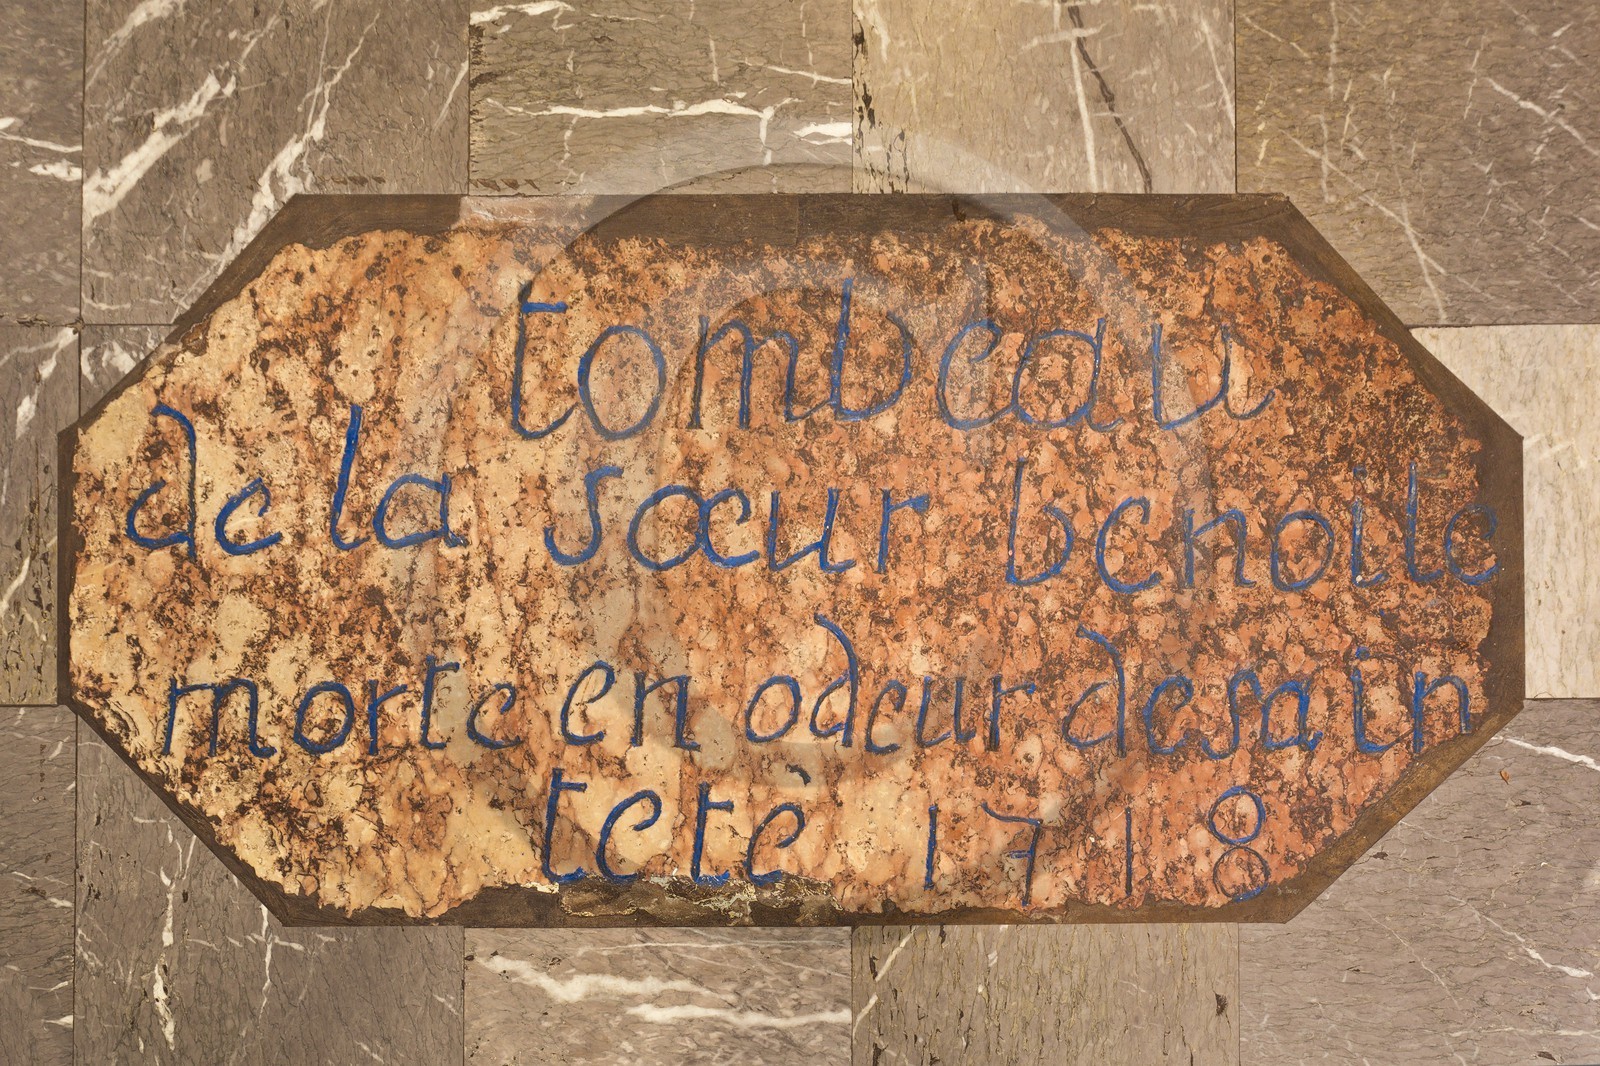 tombeau
de la sœur benoite
morte en odeur desain
teté 1718